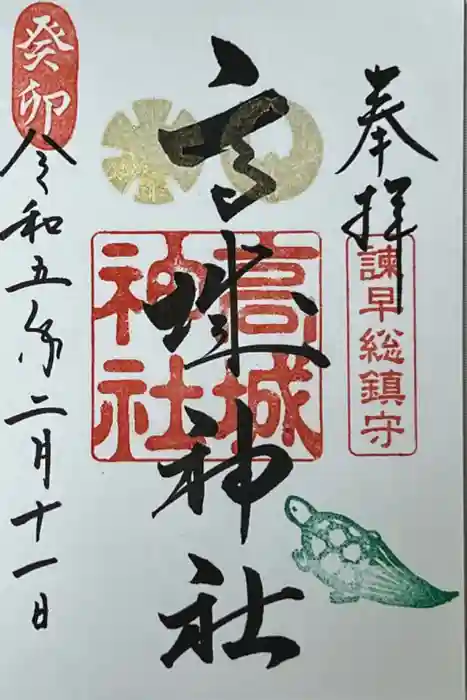 奉拝
諫早総鎮守
高城神社
高城神社
癸卯
令和五年二月十一日